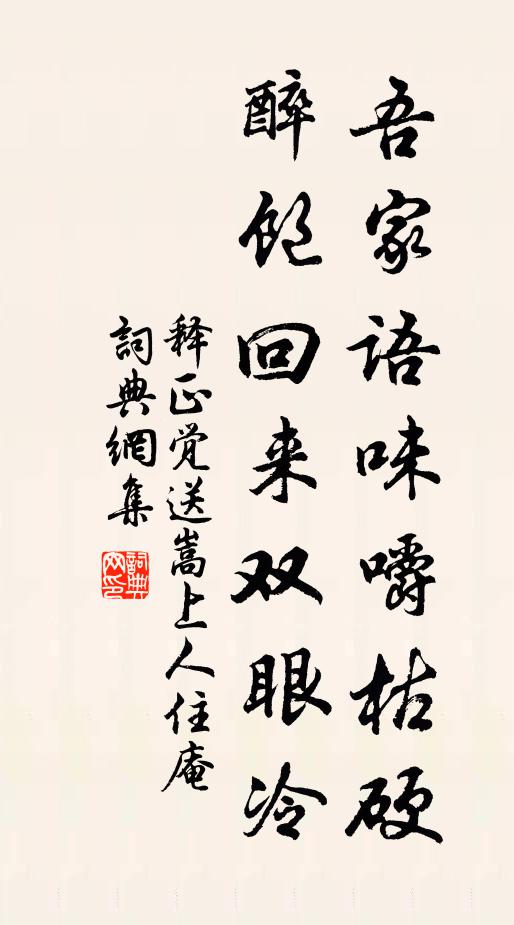 吾家语味嚼枯硬
醉饱回来双眼冷
释正觉送嵩上人住庵
词典網集
詞典
网印